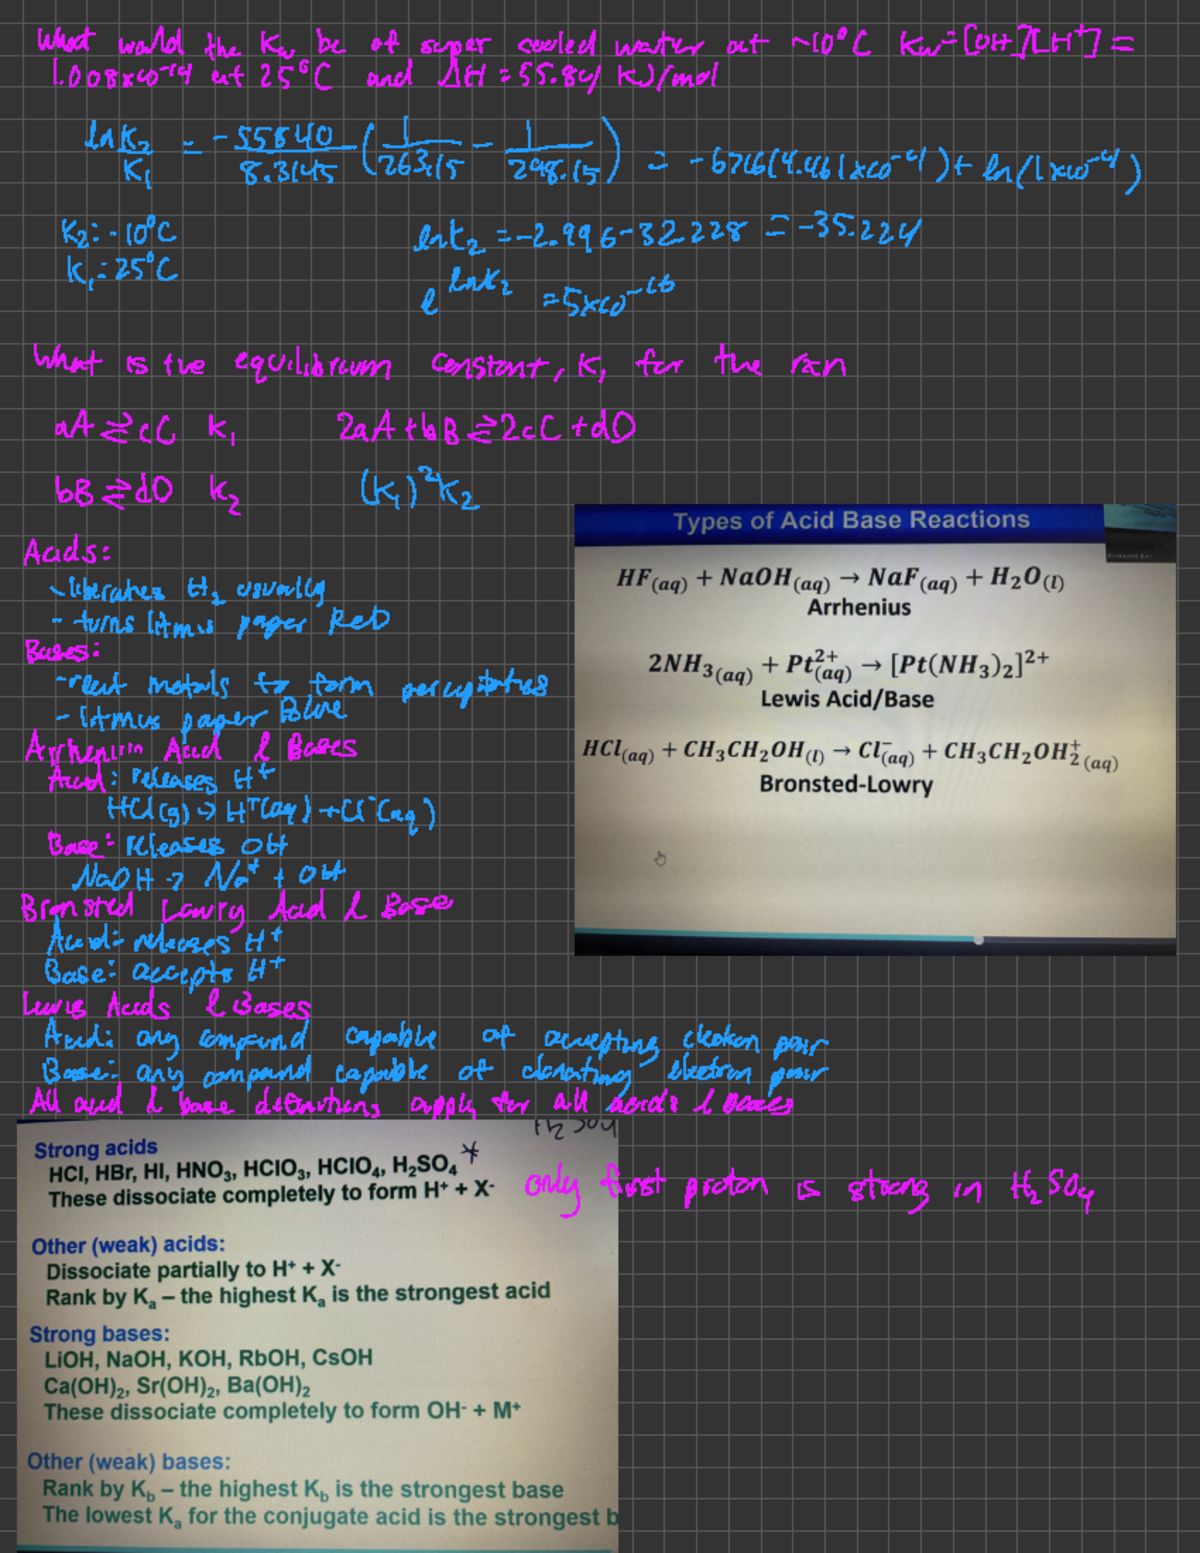 What would the Kw be of super cooled water at ~10°C Kw=[OH⁻][H⁺]=
1.008x10⁻¹⁴ at 25°C and ΔH = 55.84 KJ/mol
ln K₂/K₁ = -55840/8.3145 (1/263.15 - 1/298.15) = -6716(4.461x10⁻⁴) + ln(1x10⁻¹⁴)
K₂: -10°C
K₁: 25°C
lnK₂ = -2.996-32.228 = -35.224
e^lnK₂ = 5x10⁻¹⁶
What is the equilibrium constant, K, for the rxn
aA ⇌ cC K₁ 2aA + bB ⇌ 2cC + dD
bB ⇌ dD K₂ (K₁)²K₂
Acids:
- liberates H₂ usually
- turns litmus paper Red
Bases:
- react metals to form
- litmus paper Blue
Acid & Bases
Acid: releases H⁺
HCl(g) → H⁺(aq) + Cl⁻(aq)
Base: releases OH
NaOH → Na⁺ + OH
Bronsted Lowry Acid & Base
Acid: releases H⁺
Base: accepts H⁺
Lewis Acids & Bases
Acid: any compound capable of accepting electron pair
Base: any compound capable of donating electron pair
All acid & base definitions apply for all acids & bases
Types of Acid Base Reactions
HF(aq) + NaOH(aq) → NaF(aq) + H₂O(l)
Arrhenius
2NH₃(aq) + Pt²⁺(aq) → [Pt(NH₃)₂]²⁺
Lewis Acid/Base
HCl(aq) + CH₃CH₂OH(l) → Cl⁻(aq) + CH₃CH₂OH₂⁺(aq)
Bronsted-Lowry
H₂SO₄
Strong acids
HCl, HBr, HI, HNO₃, HClO₃, HClO₄, H₂SO₄ *
These dissociate completely to form H⁺ + X⁻
only first proton is strong in H₂SO₄
Other (weak) acids:
Dissociate partially to H⁺ + X⁻
Rank by Kₐ – the highest Kₐ is the strongest acid
Strong bases:
LiOH, NaOH, KOH, RbOH, CsOH
Ca(OH)₂, Sr(OH)₂, Ba(OH)₂
These dissociate completely to form OH⁻ + M⁺
Other (weak) bases:
Rank by K_b – the highest K_b is the strongest base
The lowest Kₐ for the conjugate acid is the strongest b